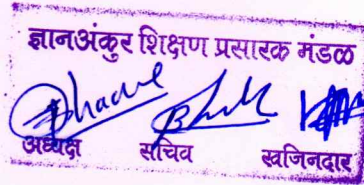 ज्ञानअंकुर शिक्षण प्रसारक मंडळ
अध्यक्ष सचिव खजिनदार